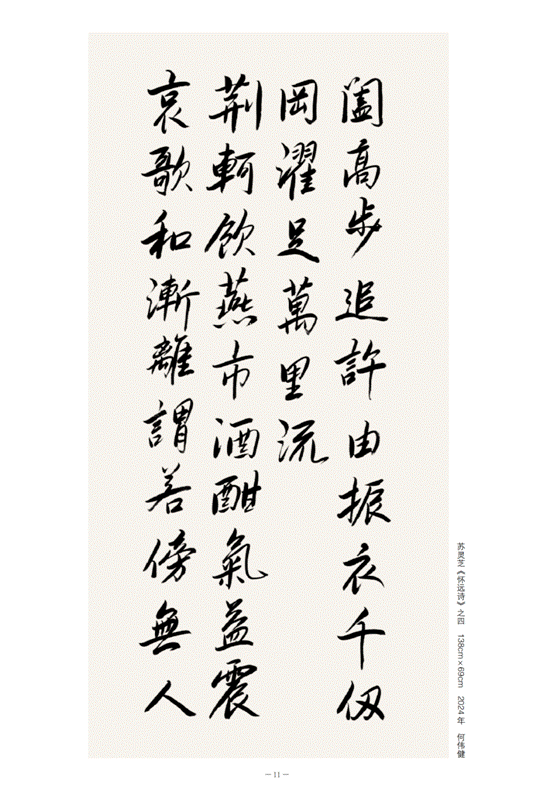 闔高步追許由振衣千仞
岡濯足萬里流
荆軻飲燕市酒酣氣益震
哀歌和漸離謂若傍無人
苏灵芝《怀远诗》之四 138cm×69cm 2024年 何伟健
— 11 —